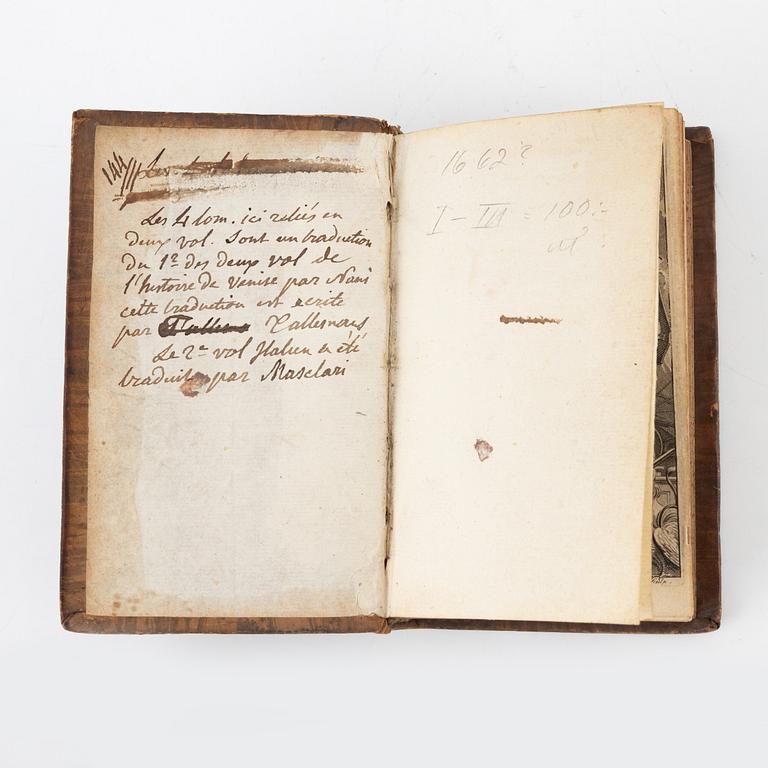 144
Les
Les 4 tom. ici reliés en
deux vol. sont un traduction
du 1er des deux vol de
l'histoire de Venise par Nani
cette traduction est ecrite
par Tallemous
Le 2e vol Italien a été
traduit par Masclari
1662?
I - III = 100:-